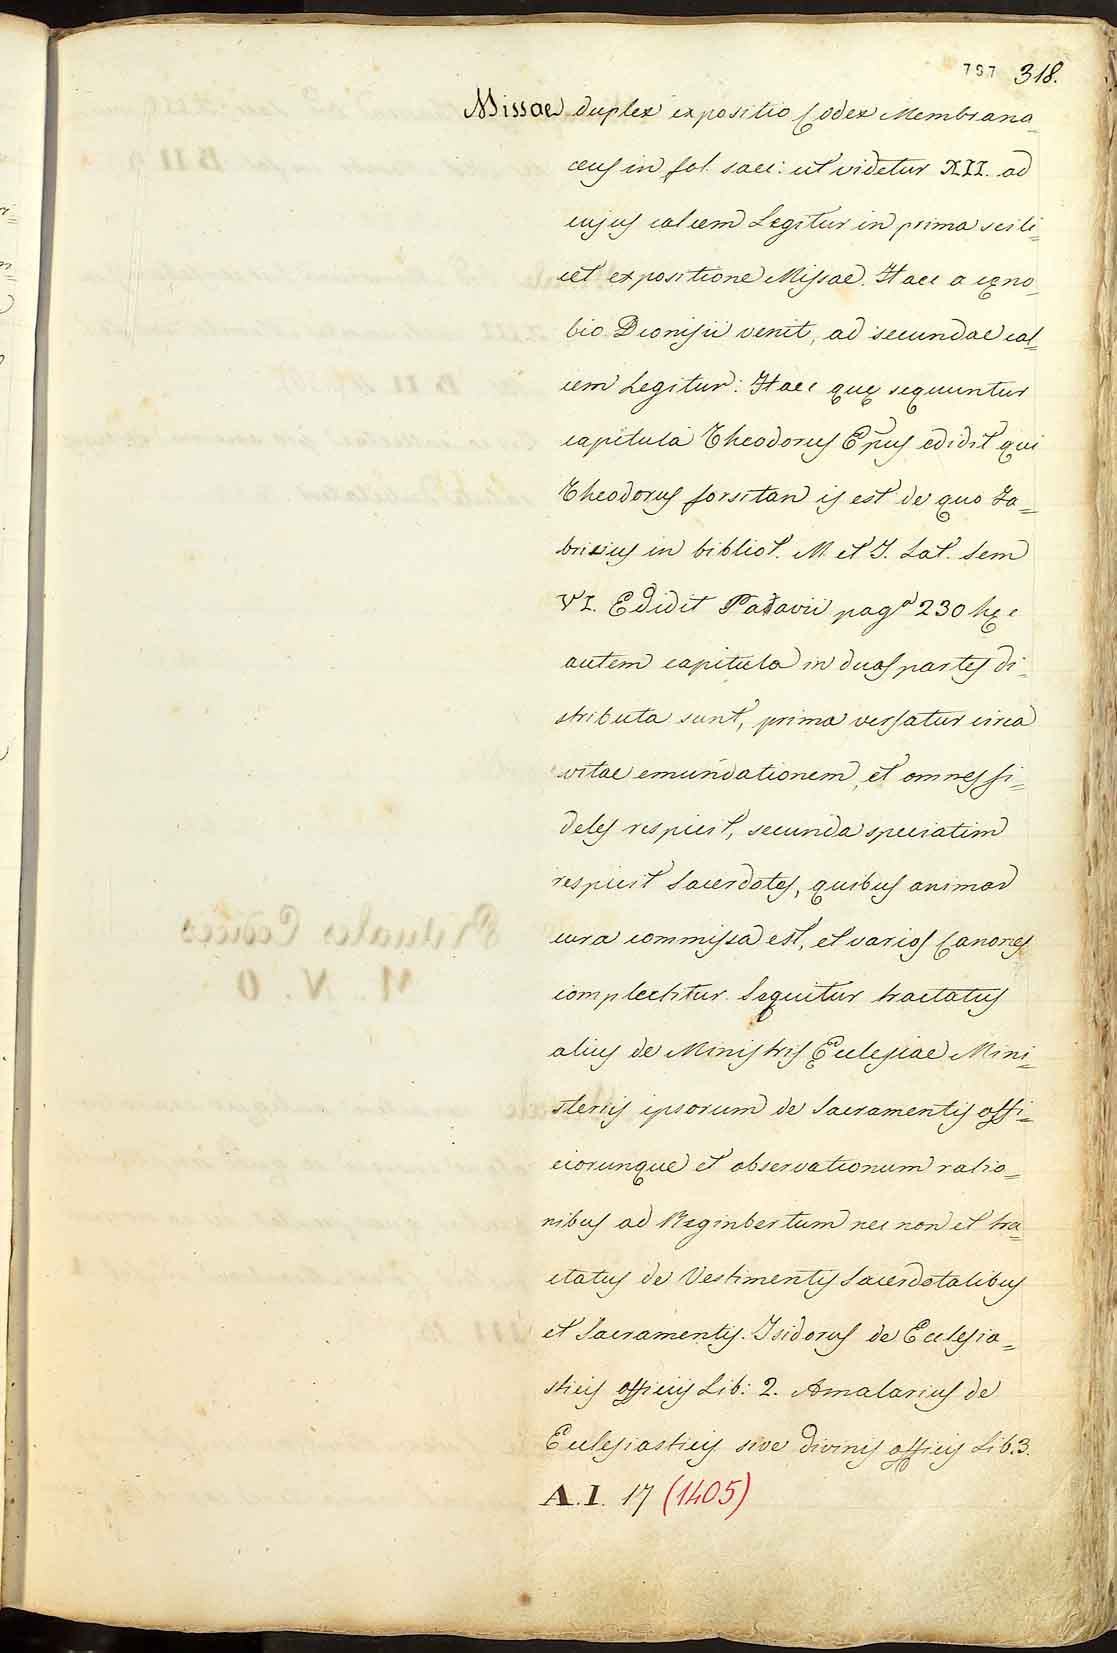 797 318.
Missae duplex expositio Codex Membrana=
ceus in fol. saec: ut videtur XII. ad
cujus calcem Legitur in prima scili=
cet expositione Missae. Haec a cęno=
bio Dionisii venit, ad secundae cal=
cem Legitur: Haec quę sequuntur
capitula Theodorus Epus edidit qui
Theodorus forsitan is est de quo Fa=
bricius in bibliot. M. et I. Lat. Sem
VI. Edidit Patavii pagª 230 hęc
autem capitula in duas partes di=
stributa sunt, prima versatur circa
vitae emundationem, et omnes fi=
deles respicit, secunda speciatim
respicit Sacerdotes, quibus animar
cura commissa est, et varios Canones
complectitur. Sequitur tractatus
alius de Ministris Ecclesiae Mini=
steriis ipsorum de Sacramentis offi=
ciorunque et observationum ratio=
nibus ad Reginbertum nec non et tra=
ctatus de Vestimentis Sacerdotalibus
et Sacramentis. Isidorus de Ecclesia=
sticis officiis Lib: 2. Amalarius de
Ecclesiasticis sive divinis officiis Lib. 3.
A. I. 17 (1405)